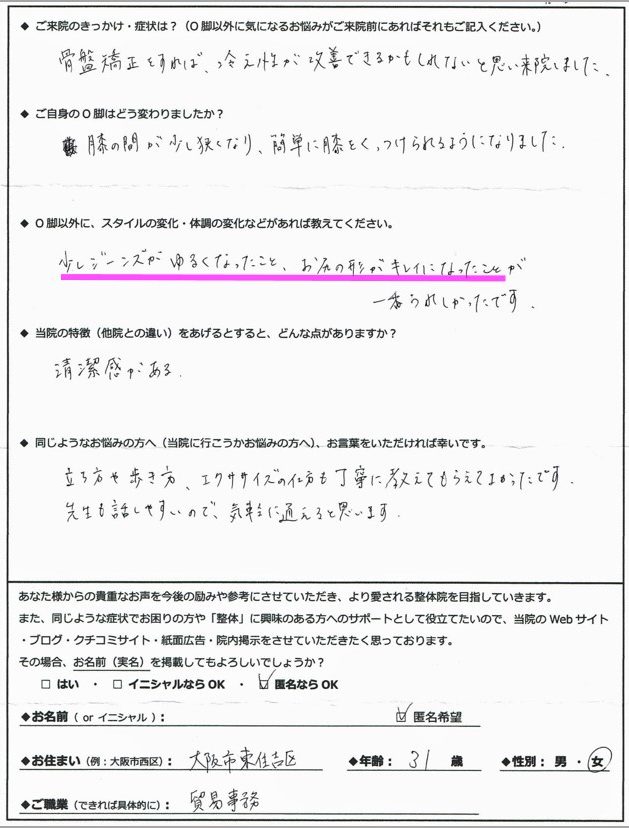 ◆ ご来院のきっかけ・症状は？（O脚以外に気になるお悩みがご来院前にあればそれもご記入ください。）
骨盤矯正をすれば、冷え性が改善できるかもしれないと思い来院しました。
◆ ご自身のO脚はどう変わりましたか？
膝の間が少し狭くなり、簡単に膝をくっつけられるようになりました。
◆ O脚以外に、スタイルの変化・体調の変化などがあれば教えてください。
少しジーンズがゆるくなったこと、お尻の形がキレイになったことが
一番うれしかったです。
◆ 当院の特徴（他院との違い）をあげるとすると、どんな点がありますか？
清潔感がある。
◆ 同じようなお悩みの方へ（当院に行こうかお悩みの方へ）、お言葉をいただければ幸いです。
立ち方や歩き方、エクササイズの仕方も丁寧に教えてもらえてよかったです。
先生も話しやすいので、気軽に通えると思います。
あなた様からの貴重なお声を今後の励みや参考にさせていただき、より愛される整体院を目指していきます。
また、同じような症状でお困りの方や「整体」に興味のある方へのサポートとして役立てたいので、当院のWebサイト
・ブログ・クチコミサイト・紙面広告・院内掲示をさせていただきたく思っております。
その場合、お名前（実名）を掲載してもよろしいでしょうか？
□ はい ・ □ イニシャルならOK ・ ☑ 匿名ならOK
◆お名前（ or イニシャル ）： ☑ 匿名希望
◆お住まい（例：大阪市西区）： 大阪市東住吉区 ◆年齢： 31 歳 ◆性別： 男 ・ 女
◆ご職業（できれば具体的に）： 貿易事務